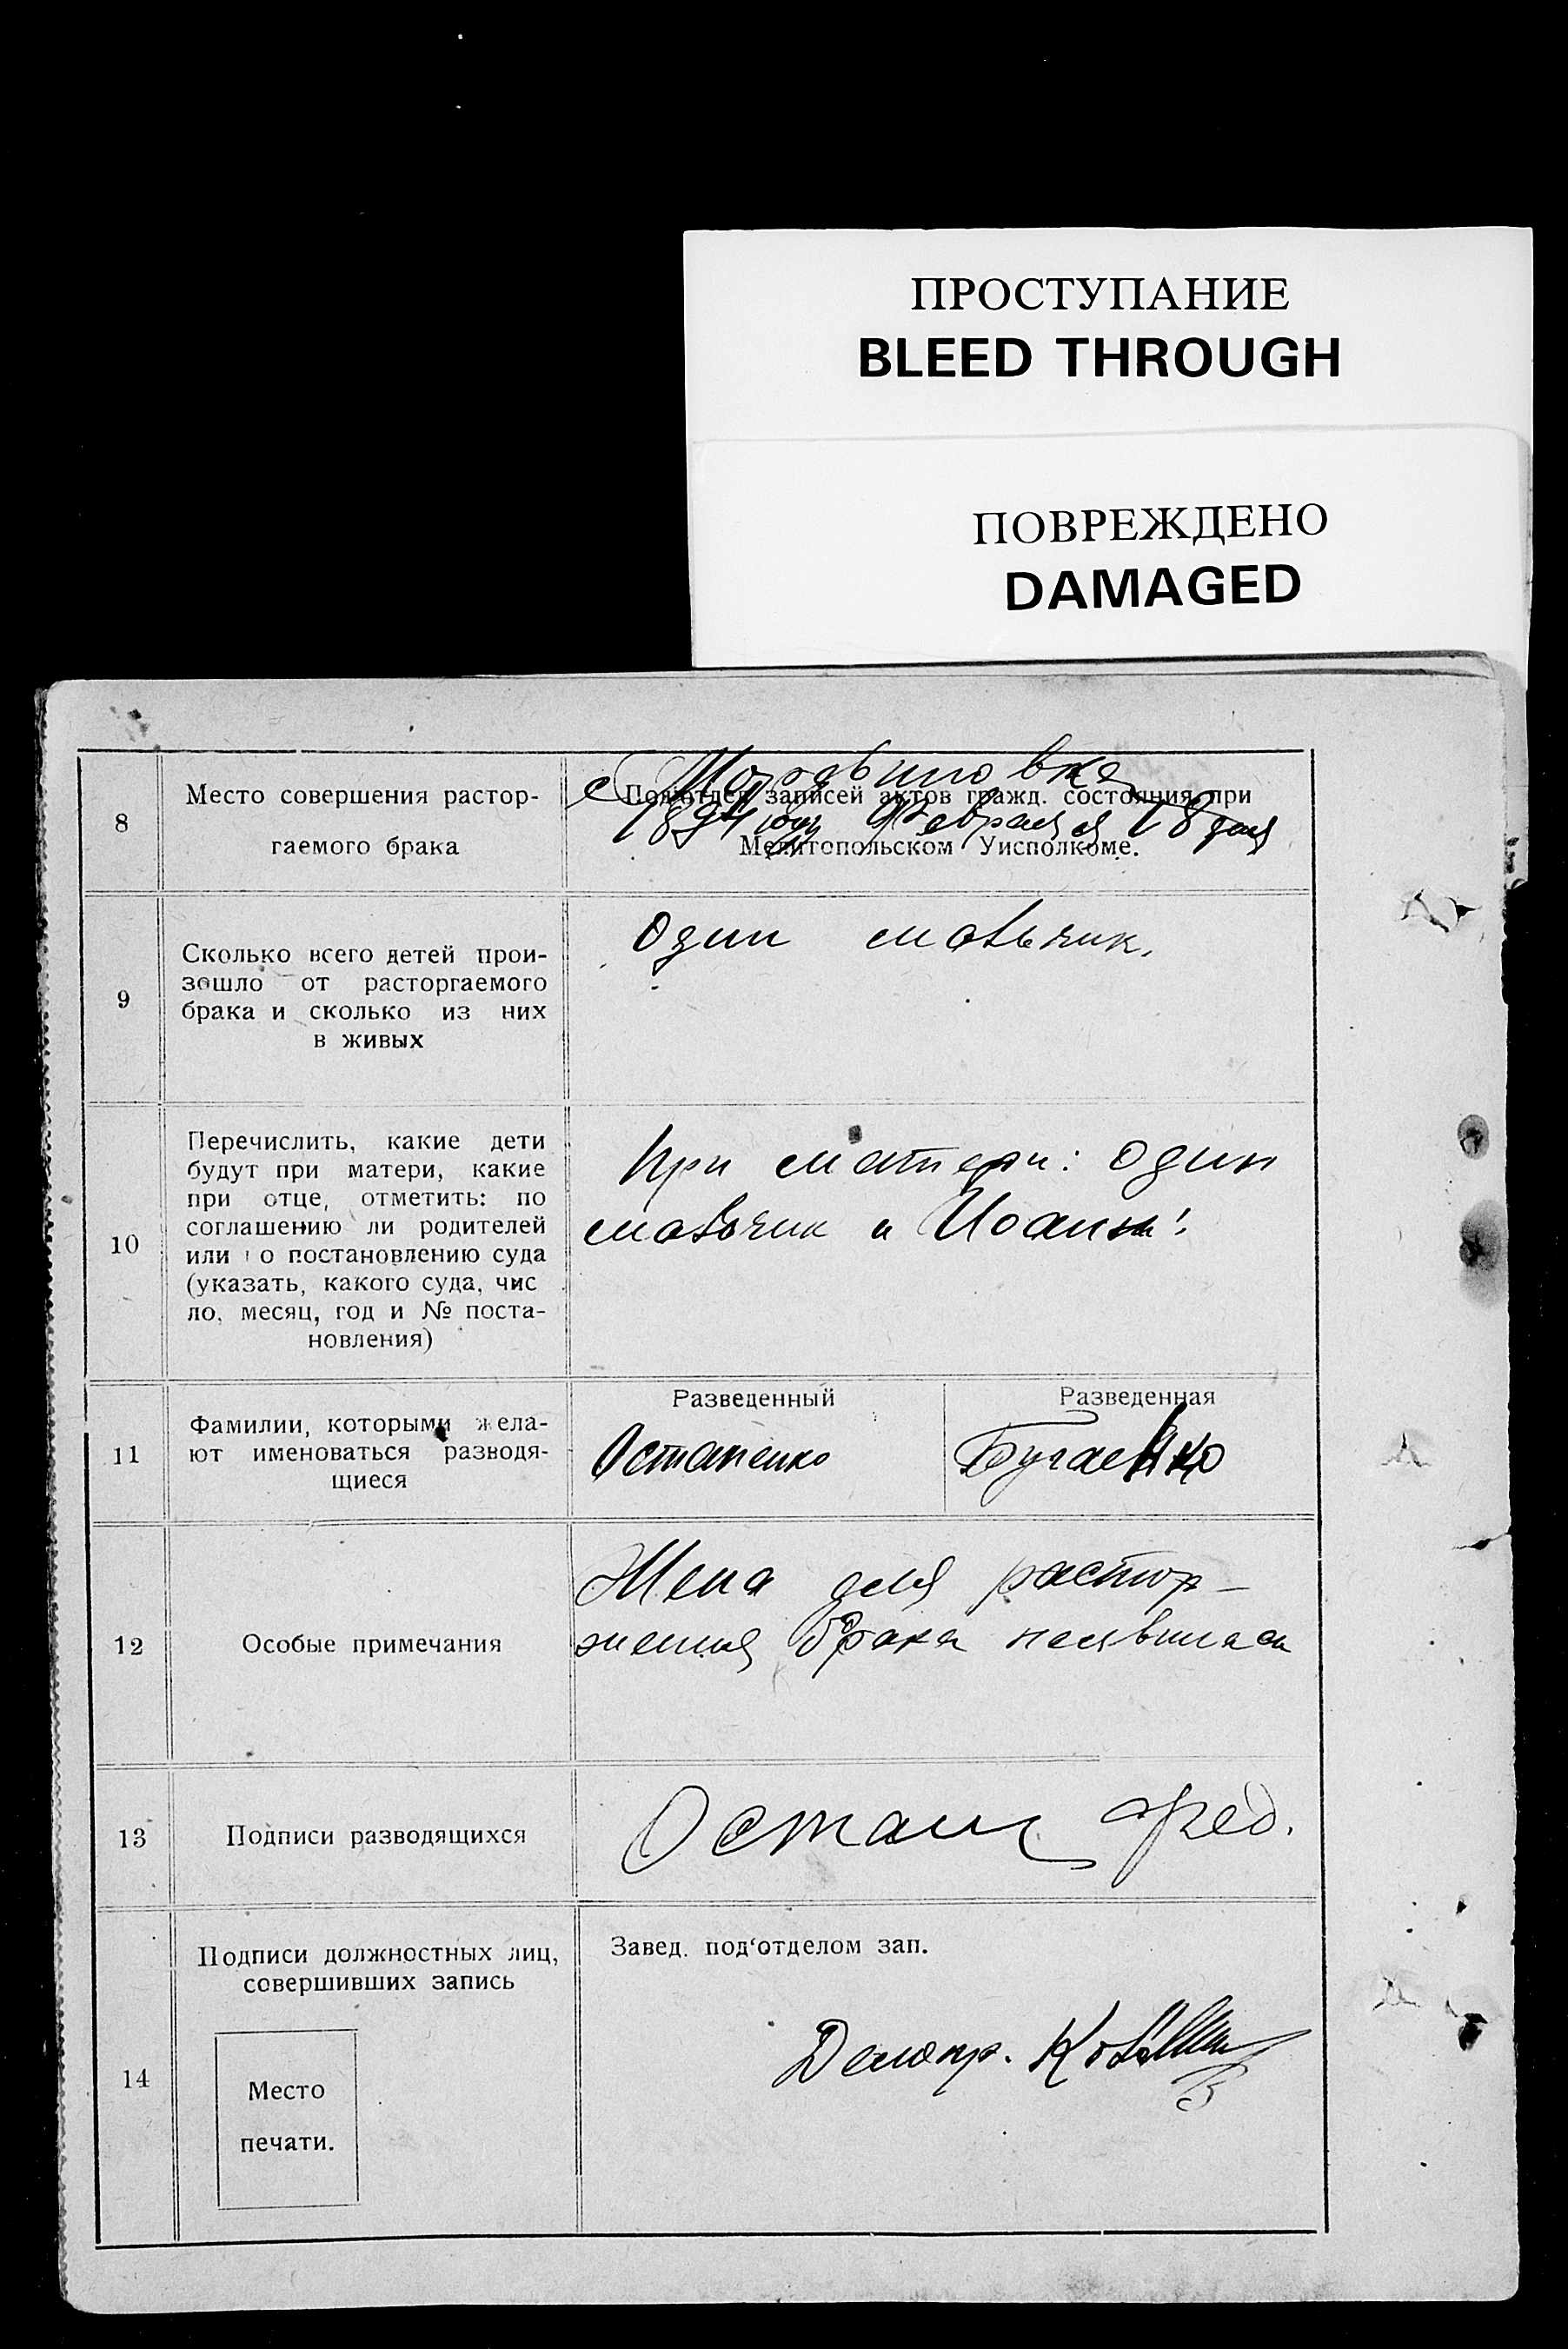 ПРОСТУПАНИЕ
BLEED THROUGH
ПОВРЕЖДЕНО
DAMAGED
8
Место совершения растор-
гаемого брака
с Мордвиновке
Под'отдел записей актов гражд. состояния при
Февраля 18 дня
Мелитопольском Уисполкоме.
9
Сколько всего детей прои-
зошло от расторгаемого
брака и сколько из них
в живых
Один мальчик.
10
Перечислить, какие дети
будут при матери, какие
при отце, отметить: по
соглашению ли родителей
или о постановлению суда
(указать, какого суда, чис
ло, месяц, год и № поста-
новления)
При матери: один
мальчик
11
Фамилии, которыми жела-
ют именоваться разводя-
щиеся
Разведенный
Остапенко
Разведенная
Бугаенко
12
Особые примечания
Жена для растор-
жения брака неявилась
13
Подписи разводящихся
Остап Фед.
14
Подписи должностных лиц,
совершивших запись
Место
печати.
Завед. под‘отделом зап.
Делопр.